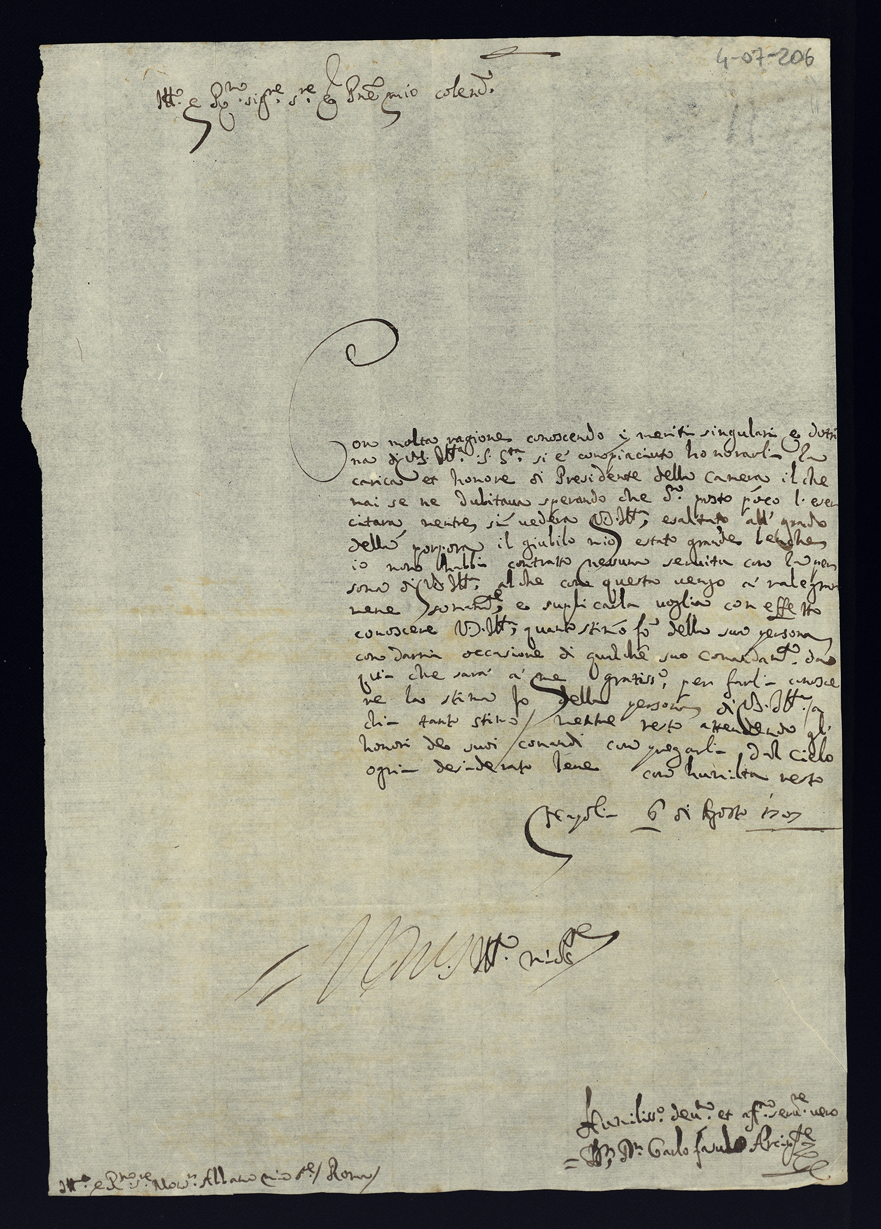 4-07-206
Ill.mo e R.mo sig.re s.re e Prone mio colend.mo
Con molta ragione conoscendo i meriti singulari e dotri
na di V.S. Ill.ma S. S.ta si è compiaciuto honorarla la
carica et honore di Presidente della Camera il che
mai se ne dubitava sperando che posto poco l'eser
citarà, mentre si vederà V.S. Ill.ma esaltato all' grado
della porpora il giubilo mio è stato grande benche
io non habbia contratto nessuna servitù con la per
sona di V.S. Ill.ma al che con questa vengo a ralegrar
mene e suplicarla voglia con effetto
conoscere V.S. Ill.ma quanto stimo fo della sua persona
con darmi occasione di qualche suo comandam.to
che sarà a me gratiss.o per farli conosce
re la stima fo della persona di V.S. Ill.ma a
chi tanto stimo, mentre resto attendendo gl'
honori de suoi comandi con pregarli dal Cielo
ogni desiderato bene con humiltà resto
Napoli 6 di Agosto 1707
Di V.S. Ill.ma
Humiliss.o dev.mo et aff.mo serv.re vero
D. Carlo
Ill.mo e R.mo Mons.r Albano mio s.re / Roma /